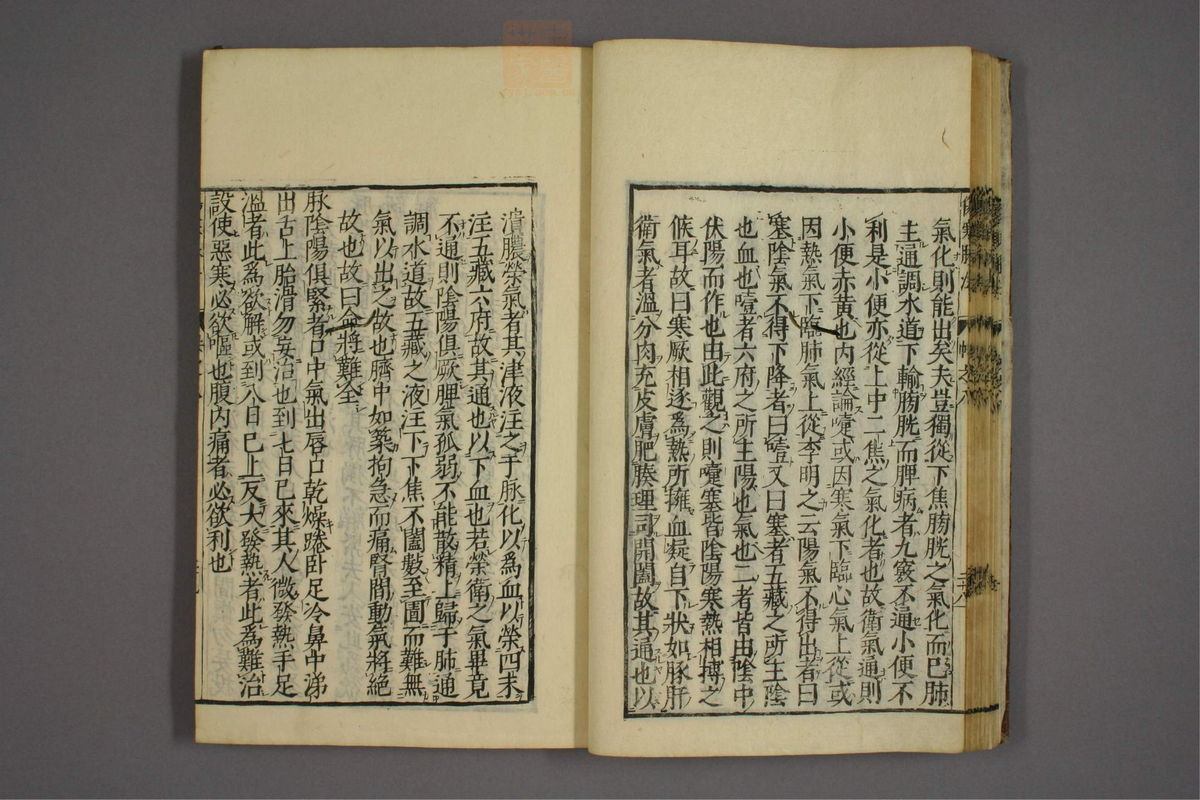 氣化則能出矣夫豈獨從下焦膀胱之氣化而已肺
主通調水道下輸膀胱而脾病者九竅不通小便不
利是小便亦從上中二焦之氣化者也故衛氣通則
小便赤黃也內經論嚏或因寒氣下臨心氣上從或
因熱氣下臨肺氣上從李明之云陽氣不得出者曰
塞陰氣不得下降者曰噎又曰塞者五藏之所主陰
也血也噎者六府之所主陽也氣也二者皆由陰中
伏陽而作也由此觀之則嚏塞皆陰陽寒熱相搏之
候耳故曰寒厥相逐爲熱所擁血凝自下狀如豚肝
衛氣者溫分肉充皮膚肥腠理司開闔故其通也以
潰膿榮氣者其津液注之于脉化以爲血以榮四末
注五藏六府故其通也以下血也若榮衛之氣畢竟
不通則陰陽俱厥脾氣孤弱不能散精上歸于肺通
調水道故五藏之液注下下焦不闔數至圊而難無
氣以出之故也臍中如築拘急而痛腎間動氣將絕
故也故曰命將難全
脉陰陽俱緊者口中氣出唇口乾燥踡臥足冷鼻中涕
出舌上胎滑勿妄治也到七日已來其人微發熱手足
溫者此爲欲解或到八日已上反大發熱者此爲難治
設使惡寒必欲嘔也腹內痛者必欲利也